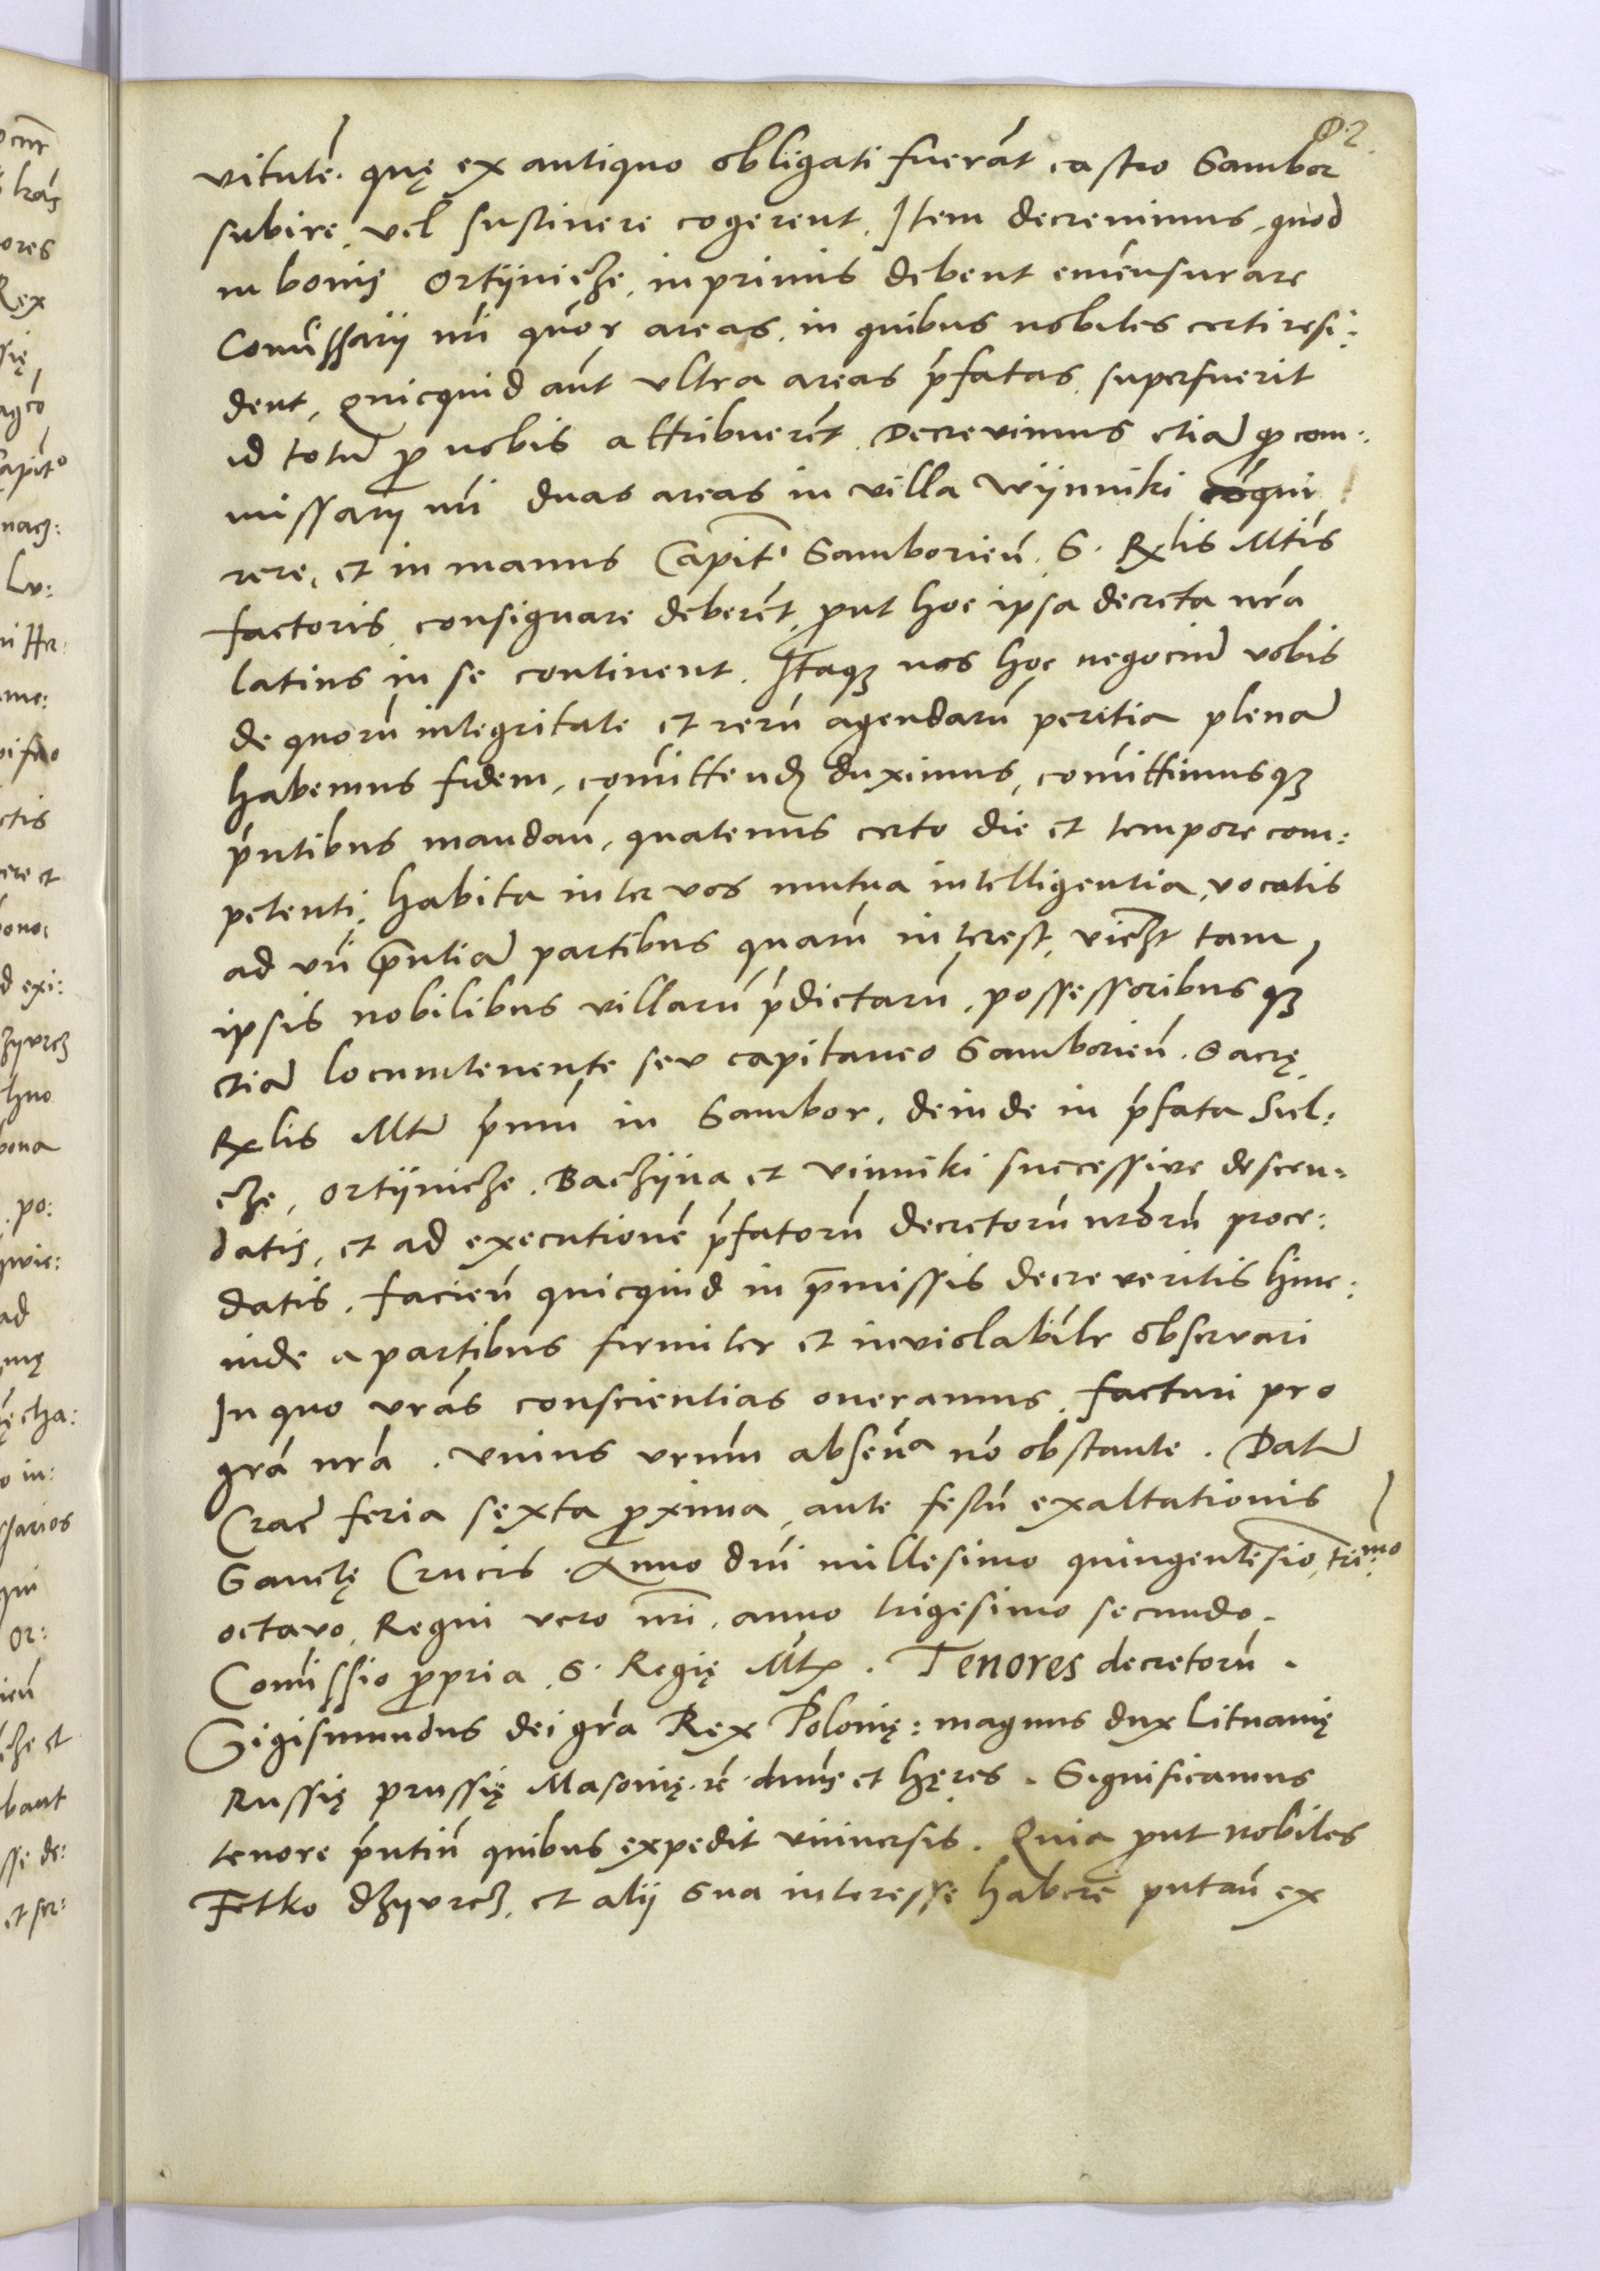 vituté. quę ex antiquo obligati fuerát castro Sambor
subire, vel sustinere cogerent. Item decrevimus, quod
in bonis Ortÿnicze, inprimis debent emensurare
Comissarÿ nri quor areas, in quibus nobiles certi resi:
dent, Quicquid aut ultra areas pfatas, superfuerit
id totum p nobis attribueret. Decrevimus etiam q com:
missarÿ nri duas areas in villa Wÿnniki
rere, et in manus Capit. Samborien. S. Rxlis Mtis
factoris, consignare deberet, put hoc ipsa decreta nra
latius in se continent. Itaqz nos hoc negociu vobis
de quoru integritate et reru agendaru peritia plenam
habemus fidem, comittend duximus, comittimusqz
pntibus mandan, quatenus certo die et tempore com:
petenti, habita inter vos mutua intelligentia, vocatis
ad vri pntiam partibus quaru interest, viczt tam
ipsis nobilibus villaru pdictaru, possessoribus qz
etiam locumtenente seu capitaneo Samborien. Sacrę
Rxlis Mtis pmu in Sambor, deinde in pfata Siel:
cze, Ortÿnicze, Baczÿna et Vinniki successive descen:
datis, et ad executione pfatoru decretoru nroru proce:
datis, facien quicquid in pmissis decreveritis hinc:
inde a partibus firmiter et inviolabilr observari
In quo vras conscientias oneramus, facturi pro
gra nra. Unius vrum absena no obstante. Datum
Crac feria sexta pxima, ante festu exaltationis
Sanctę Crucis. Anno dni millesimo quingentesio, trimo
octavo, Regni vero nri, anno trigesimo secundo.
Comissio ppria S. Regię Mtis. Tenores decretoru.
Sigismundus dei gra Rex Polonię: magnus dux Lituanię
Russię prussię Masovię. rc. dnus et hęres. Significamus
tenore pntiu quibus expedit universis. Quia put nobiles
Fetko dzÿurcz, et alÿ Sua interesse habere putan ex